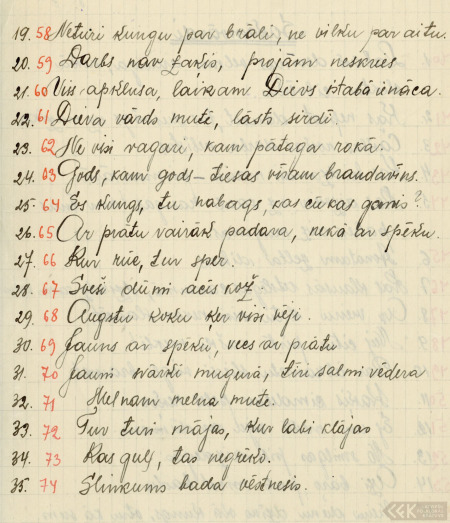 19. 58 Neturi kungu par brāli, ne vilku par aitu.
20. 59 Darbs nav zaķis, projām neskries
21. 60 Viss apklusa, laikam Dievs istabā ienāca.
22. 61 Dieva vārds mutē, lāsts sirdī.
23. 62 Ne visi vagari, kam pātaga rokā.
24. 63 Gods, kam gods – tiesas vīram brandavīns.
25. 64 Es kungs, tu nabags, kas cūkas ganīs?
26. 65 Ar prātu vairāk padara, nekā ar spēku.
27. 66 Kur rūc, tur sper.
28. 67 Sveši dūmi acīs kož.
29. 68 Augstu koku ķer visi vēji.
30. 69 Jauns ar spēku, vecs ar prātu
31. 70 Jauni svārki mugurā, tīri salmi vēderā
32. 71 Melnam melna mute.
33. 72 Tur turi mājas, kur labi klājas
34. 73 Kas guļ, tas negrēko.
35. 74 Slinkums bada vēstnesis.